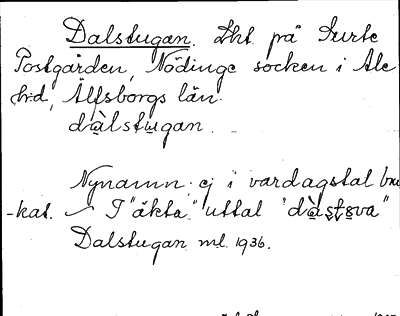 Dalstugan. Lht på Surte
Postgården, Nödinge socken i Ale
hrd, Älfsborgs län.
dàlstugan.
Nynamn ej i vardagstal bru
-kat. I "äkta" uttal "dàstova"
Dalstugan ml. 1936.